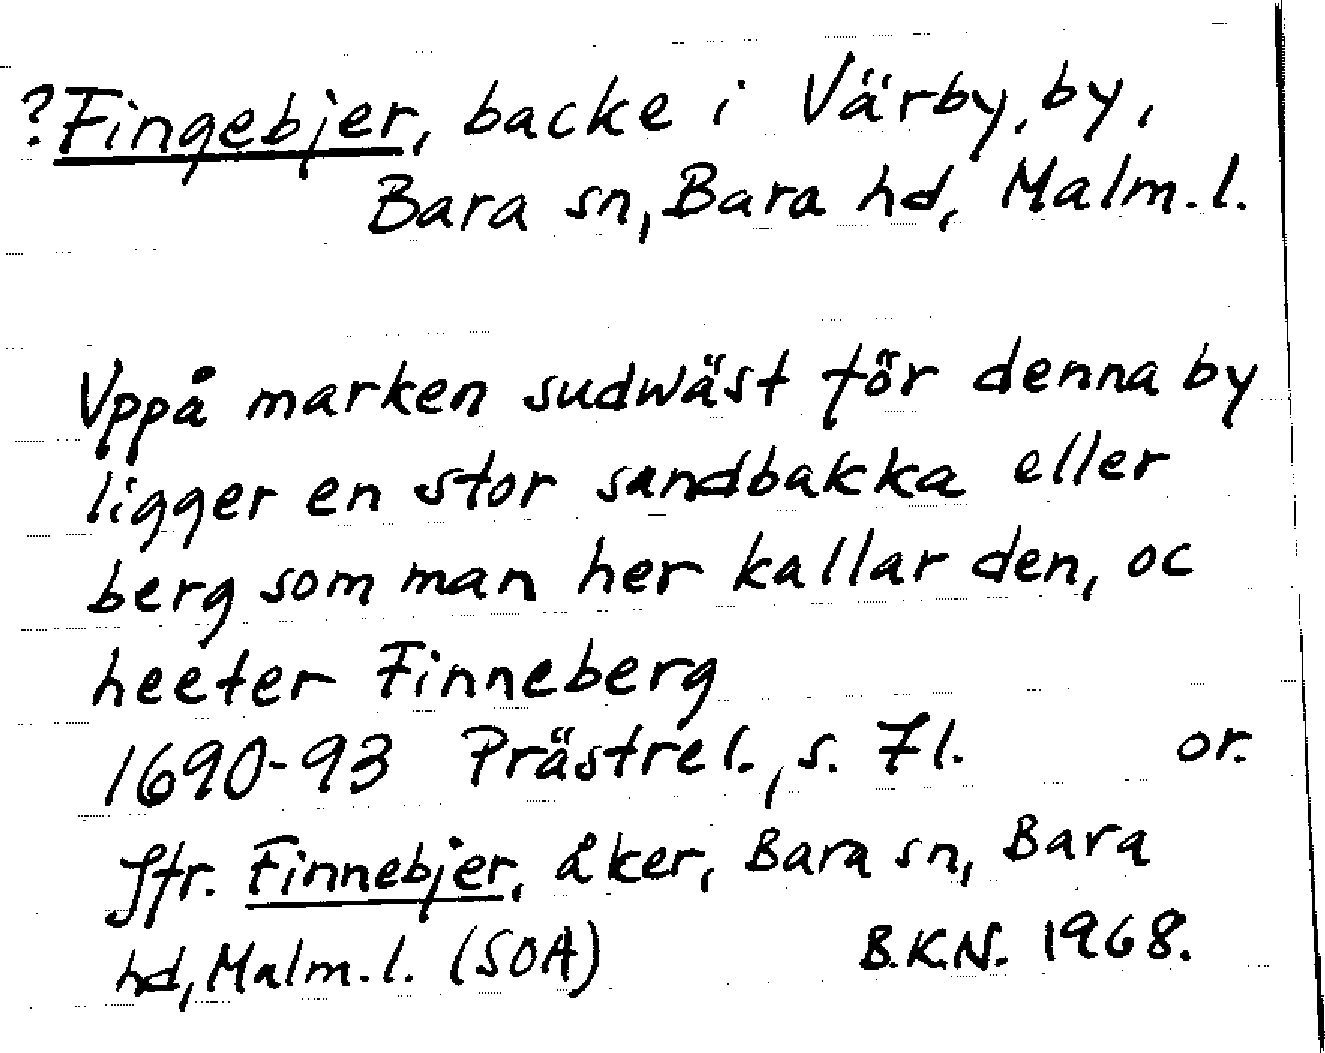 ?Fingebjer, backe i Värby, by,
Bara sn, Bara hd, Malm. l.
Vppå marken sudwäst för denna by
ligger en stor sandbakka eller
berg som man her kallar den, oc
heeter Finneberg
1690-93 Prästrel., s. 71. or.
Jfr. Finnebjer, åker, Bara sn, Bara
hd, Malm. l. (SOA) B.K.N. 1968.